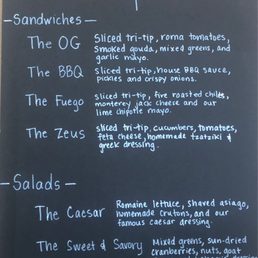 - Sandwiches -
The OG Sliced tri-tip, roma tomatoes,
smoked gouda, mixed greens, and
garlic mayo.
The BBQ Sliced tri-tip, house BBQ sauce,
pickles and crispy onions.
The Fuego sliced tri-tip, fire roasted chilis,
monterey jack cheese and our
lime chipotle mayo.
The Zeus sliced tri-tip, cucumbers, tomatoes,
feta cheese, homemade tzatziki &
greek dressing.
- Salads -
The Caesar Romaine lettuce, shaved asiago,
homemade crutons, and our
famous caesar dressing.
The Sweet & Savory Mixed greens, sun-dried
cranberries, nuts, goat